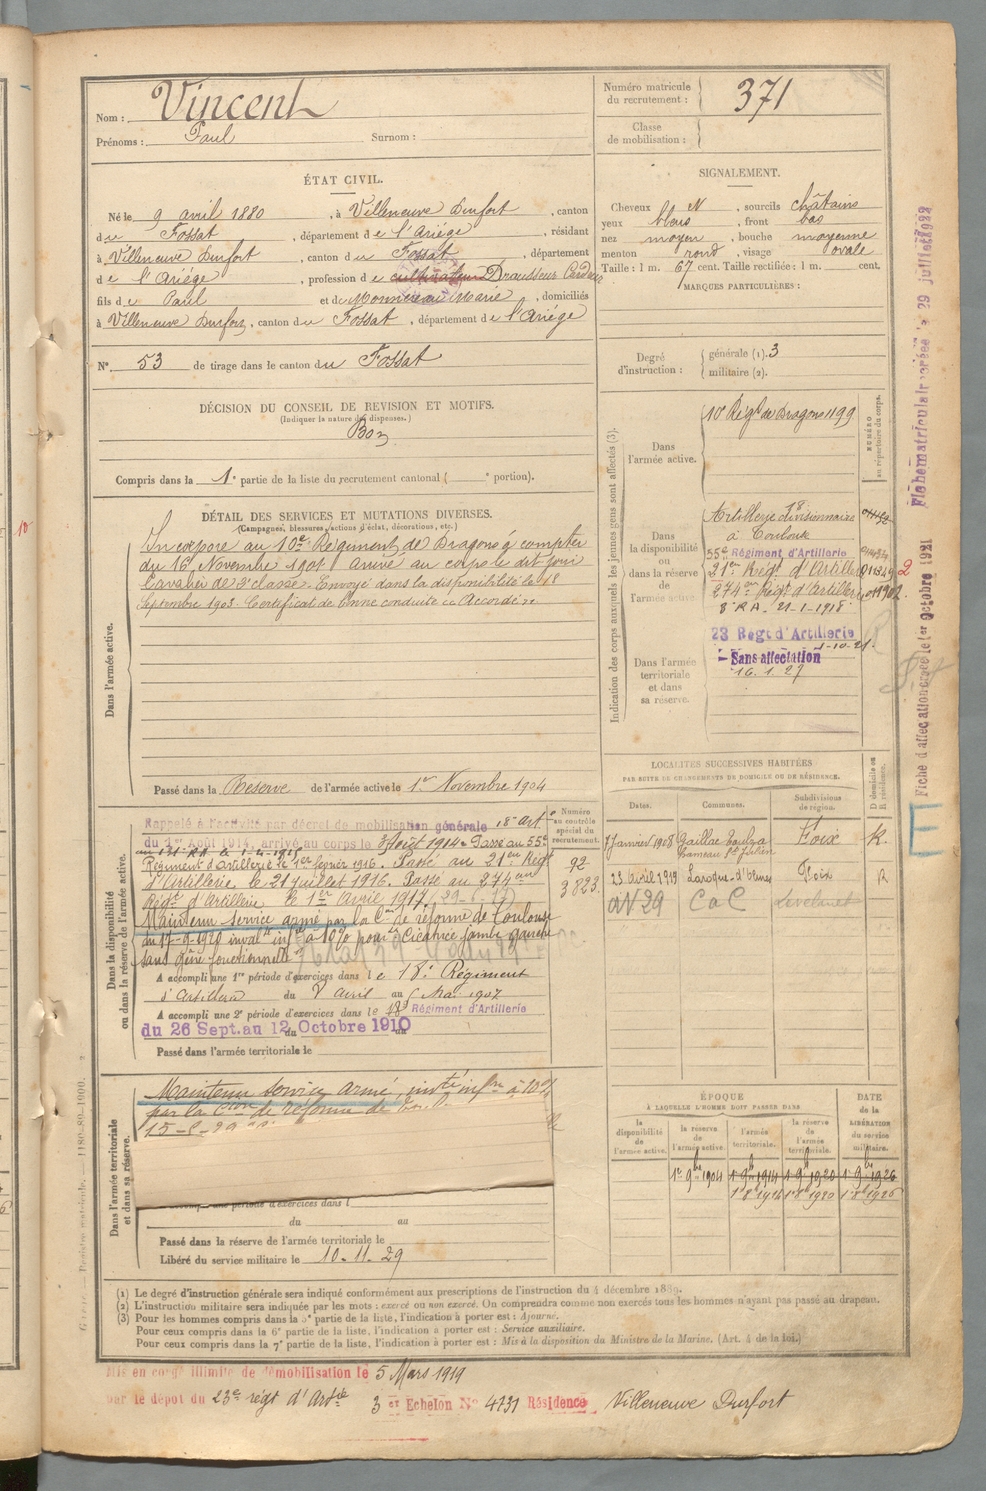 Nom : Vincent
Prénoms : Paul Surnom :
Numéro matricule du recrutement : 371
Classe de mobilisation :
ÉTAT CIVIL.
Né le 9 avril 1880, à Villeneuve Durfort, canton
du Fossat, département de l'Ariége, résidant
à Villeneuve Durfort, canton du Fossat, département
de l'Ariége, profession de cultivateur
fils de Paul et de Marie, domiciliés
à Villeneuve Durfort, canton du Fossat, département de l'Ariége
N° 53 de tirage dans le canton du Fossat
DÉCISION DU CONSEIL DE REVISION ET MOTIFS.
(Indiquer la nature des dispenses.)
Bon
Compris dans la 1e partie de la liste du recrutement cantonal ( e portion).
SIGNALEMENT.
Cheveux N, sourcils châtains
yeux bleus, front bas
nez moyen, bouche moyenne
menton rond, visage ovale
Taille : 1 m. 67 cent. Taille rectifiée : 1 m. cent.
MARQUES PARTICULIÈRES :
Degré d'instruction : générale (1). 3
militaire (2).
DÉTAIL DES SERVICES ET MUTATIONS DIVERSES.
(Campagnes, blessures, actions d'éclat, décorations, etc.)
Dans l'armée active.
Incorporé au 10e Régiment de Dragons à compter
du 16 Novembre 1901 arrivé au corps le dit jour
Cavalier de 2e classe. Envoyé dans la disponibilité le 18
Septembre 1903. Certificat de bonne conduite Accordé
Passé dans la Réserve de l'armée active le 1er Novembre 1904
Indication des corps auxquels les jeunes gens sont affectés (3).
NUMÉRO au répertoire du corps.
Dans l'armée active.
10e Régt de Dragons 1199
Dans la disponibilité ou dans la réserve de l'armée active
Artillerie divisionnaire 18
à Toulouse
55e Régiment d'Artillerie
21er Régt d'Artillerie
274er Régt d'Artillerie
8e RA. 21-1-1918
23 Régt d'Artillerie
1-10-21
Sans affectation
16.1.27
Dans l'armée territoriale et dans sa réserve.
LOCALITÉS SUCCESSIVES HABITÉES
PAR SUITE DE CHANGEMENTS DE DOMICILE OU DE RÉSIDENCE.
Dates. Communes. Subdivisions de région. D domicile ou R résidence.
7 Janvier 1908 Gaillac Toulza Foix R.
23 avril 1919 Laroque-d'Olmes Foix R
av 29 C a C Lavelanet
Dans la disponibilité ou dans la réserve de l'armée active.
Numéro au contrôle spécial du recrutement.
92
3823.
Rappelé à l'activité par décret de mobilisation générale 18e Art
du 1er Août 1914, arrivé au corps le 3 Août 1914. Passé au 55e
Régiment d'Artillerie le 1er février 1916. Passé au 21er Régt
d'Artillerie le 21 juillet 1916. Passé au 274eme
Régt d'Artillerie le 1er Avril 1917.
Maintenu service armé par la Con de réforme de Toulouse
du 17-9-1920 invalté infre à 10% pour Cicatrice jambe gauche
sans gêne fonctionnelle
A accompli une 1re période d'exercices dans le 18e Régiment
d'Artillerie du 8 avril au Mai 1907
A accompli une 2e période d'exercices dans le 18e Régiment d'Artillerie
du 26 Sept. au 12 Octobre 1910
Passé dans l'armée territoriale le
Dans l'armée territoriale et dans sa réserve.
Maintenu service armé, invté infre à 10%
par la Con de réforme de
du au
Passé dans la réserve de l'armée territoriale le
Libéré du service militaire le 10-11-29
ÉPOQUE
À LAQUELLE L'HOMME DOIT PASSER DANS
DATE de la LIBÉRATION du service militaire.
la disponibilité de l'armée active. la réserve de l'armée active. l'armée territoriale. la réserve de l'armée territoriale.
1er 9bre 1904 1er 9bre 1914 1er 9bre 1920 1er 9bre 1926
(1) Le degré d'instruction générale sera indiqué conformément aux prescriptions de l'instruction du 4 décembre 1889.
(2) L'instruction militaire sera indiquée par les mots : exercé ou non exercé. On comprendra comme non exercés tous les hommes n'ayant pas passé au drapeau.
(3) Pour les hommes compris dans la 5e partie de la liste, l'indication à porter est : Ajourné.
Pour ceux compris dans la 6e partie de la liste, l'indication à porter est : Service auxiliaire.
Pour ceux compris dans la 7e partie de la liste, l'indication à porter est : Mis à la disposition du Ministre de la Marine. (Art. 4 de la loi.)
Mis en congé illimité de démobilisation le 5 Mars 1919
par le dépôt du 23e régt d'Artie 3e Echelon N° 4731 Résidence Villeneuve Durfort
Fiche d'affectation créée le 1er Octobre 1921
Fiche matriculaire créée le 29 juillet 1922
E